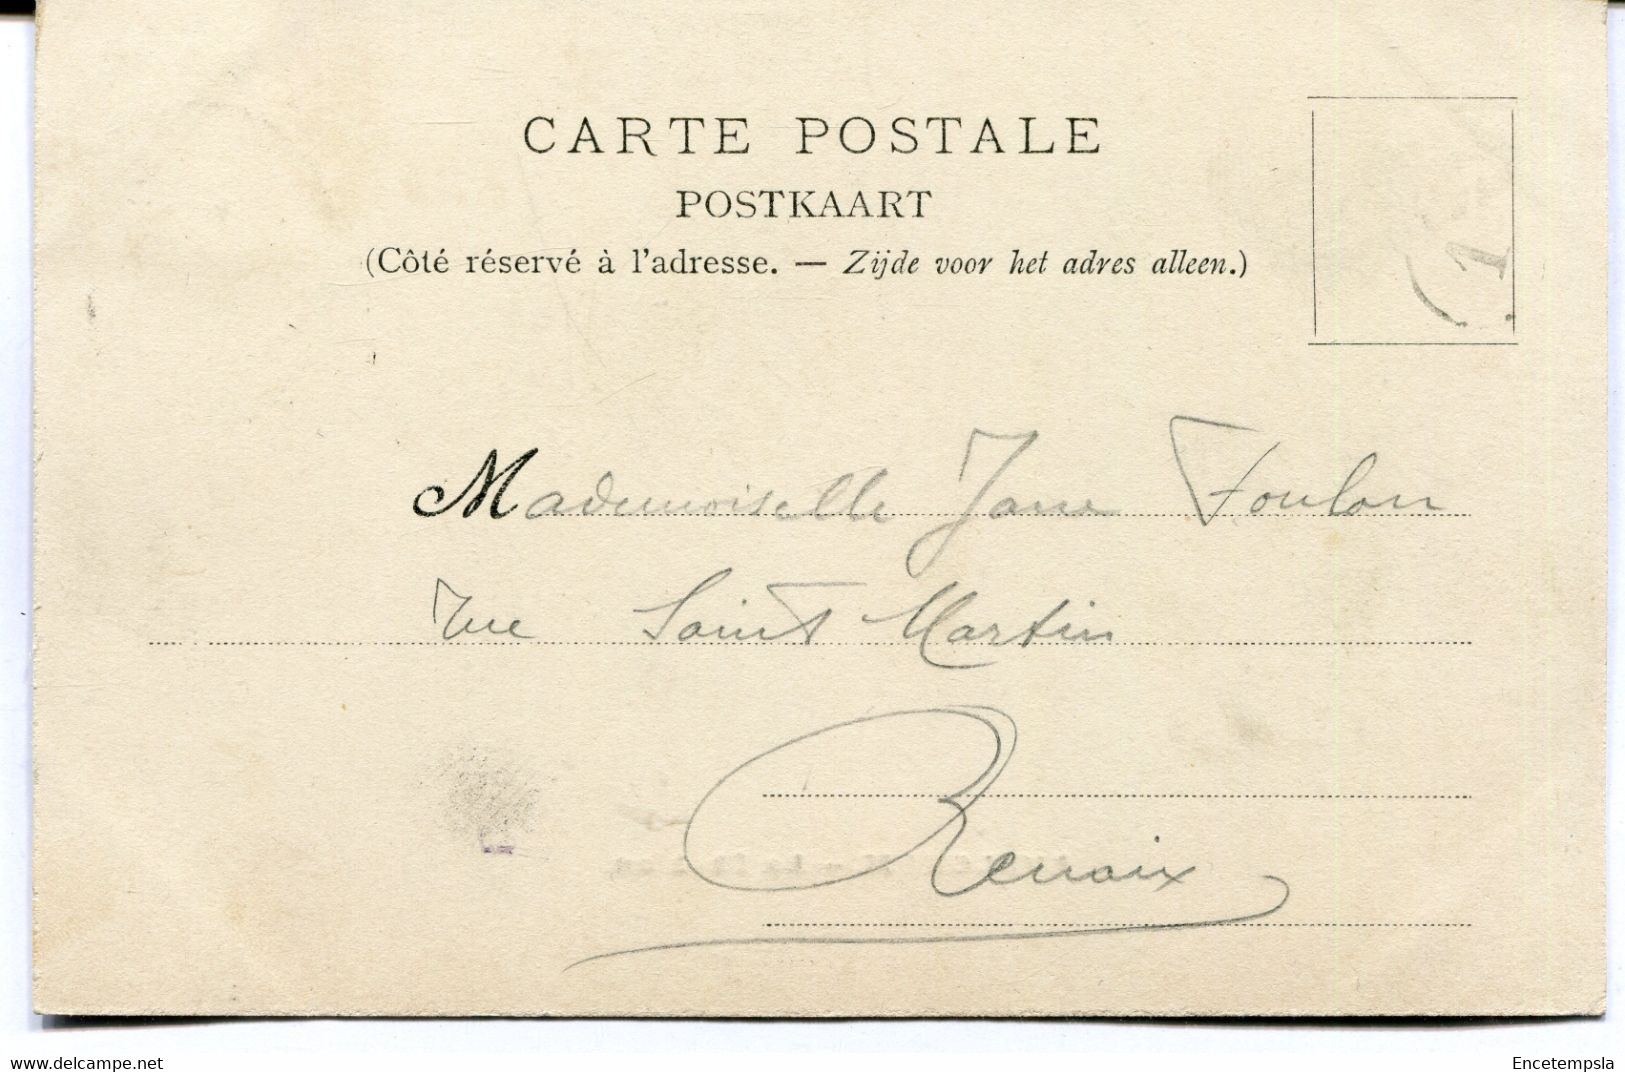 CARTE POSTALE
POSTKAART
(Côté réservé à l'adresse. — Zijde voor het adres alleen.)
(1
Mademoiselle Jane Foulon
rue Saint Martin
Renaix
www.delcampe.net
Encetempsla